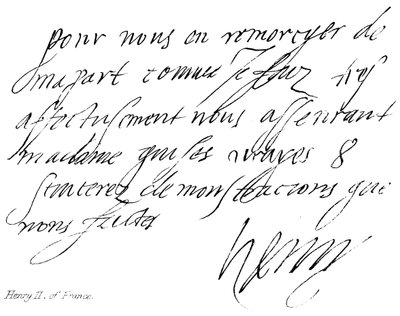 pour nous en remorcyer de
ma part comme Je fays tres
affectusment nous assurant
madame que les vrayes &
sinceres demonstracions que
nous faites
henry
Henry II. of France.